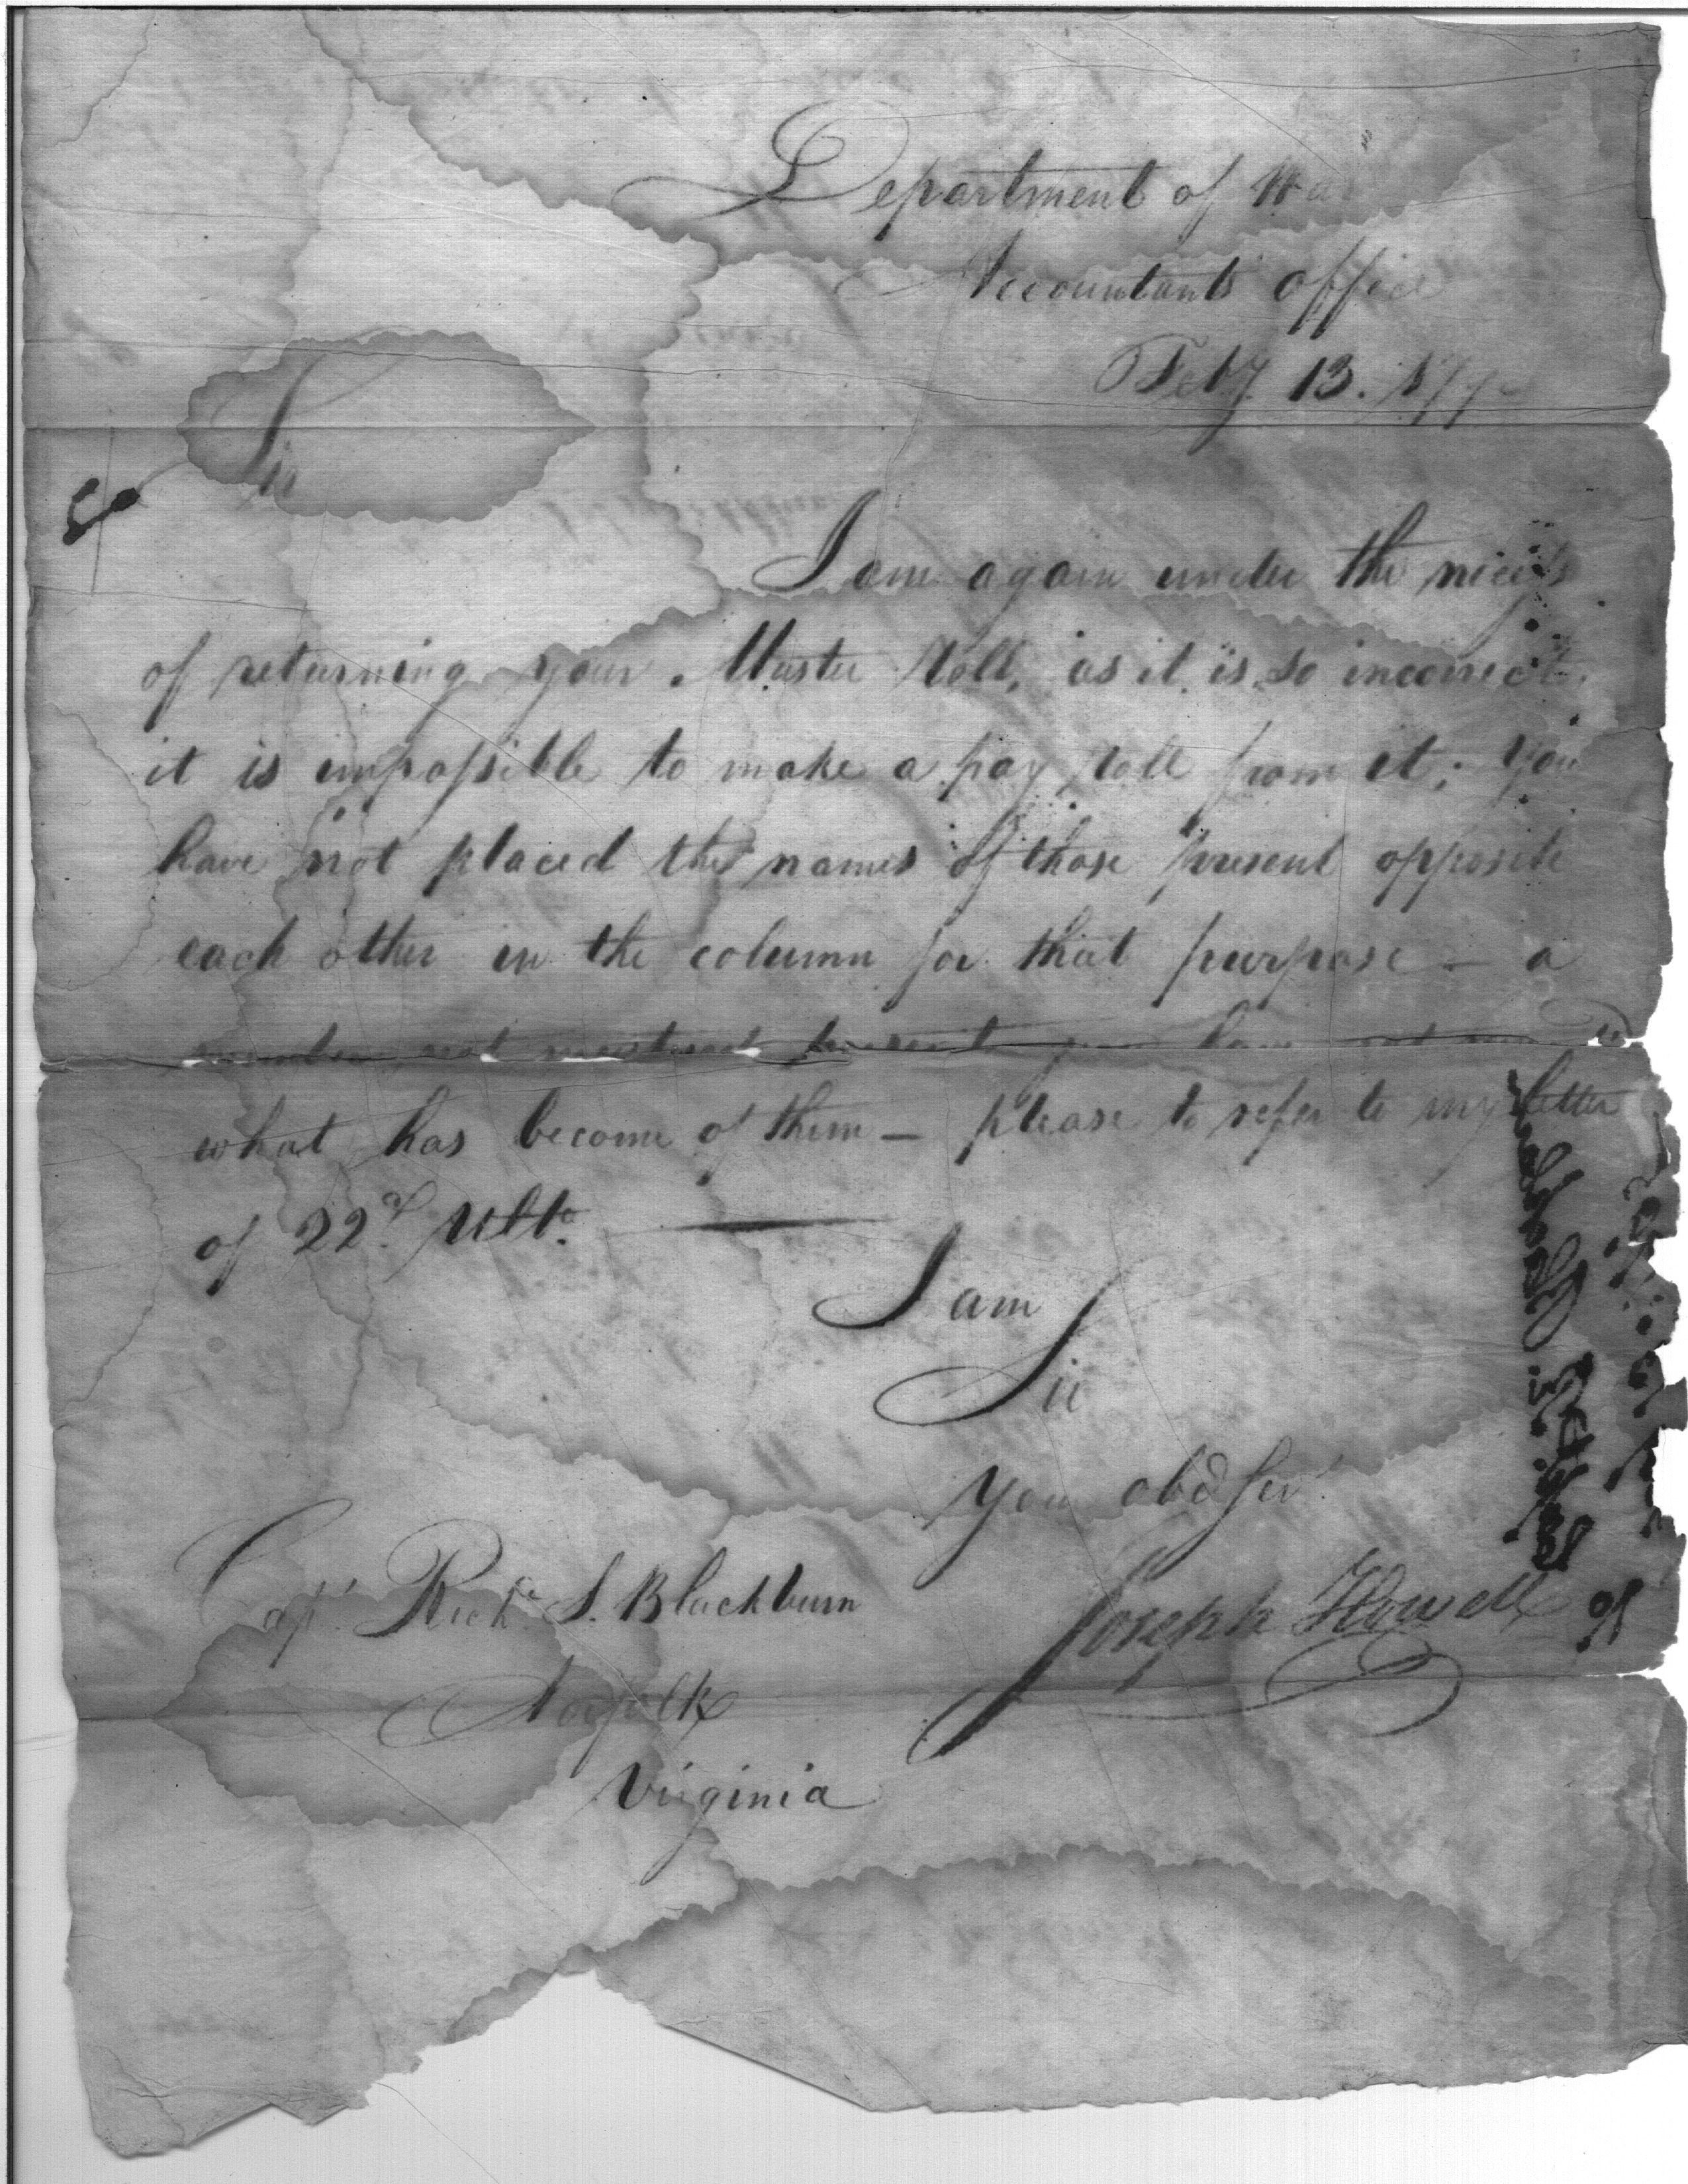 Department of War
Accountants office
Feby 13. 179
Sir
I am again under the necess
of returning your Muster Roll, as it is so incorrect
it is impossible to make a pay roll from it; You
have not placed the names of those present opposite
each other in the column for that purpose – a
number not mustered present you have not
what has become of them – please to refer to my letter
of 22d Ulto.
I am
Sir
Your obd Servt
Joseph Howell
Capt Richd S. Blackburn
Norfolk
Virginia